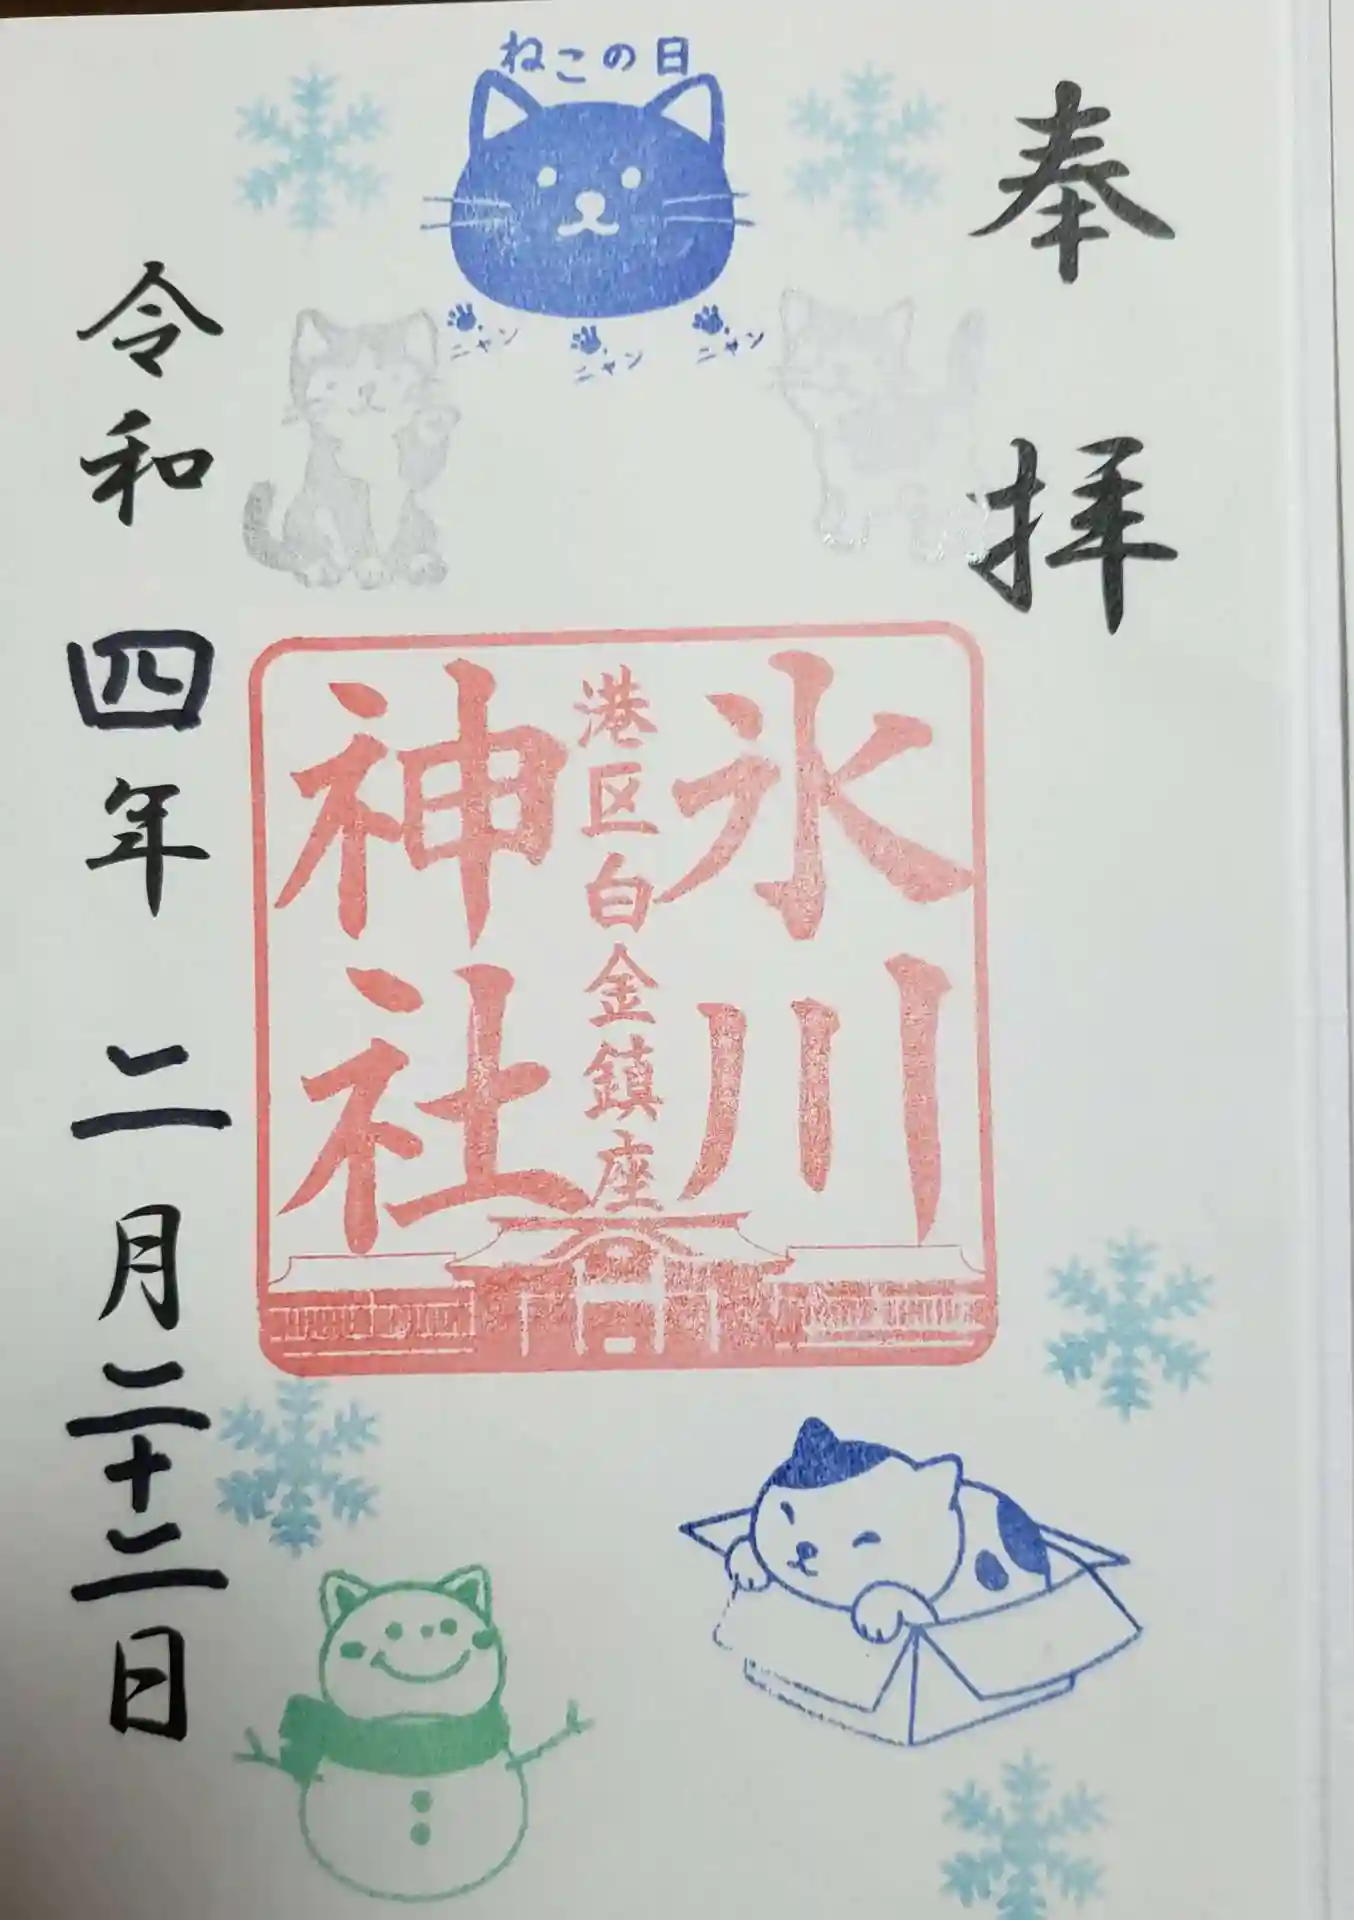 ねこの日
ニャン
ニャン
ニャン
奉拝
氷川
港区白金鎮座
神社
令和四年二月二十二日